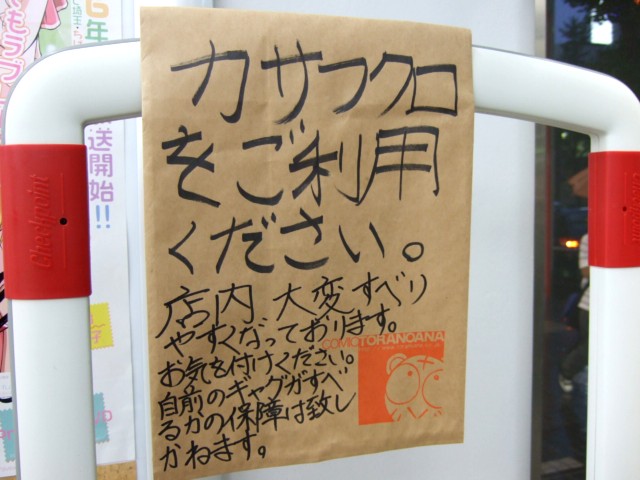 カサフクロ
をご利用
ください。
店内 大変すべり
やすくなっております。
お気を付けください。
自前のギャグがすべ
るカの保障は致し
かねます。
COMIC TORANOANA
Checkpoint
6年
送開始!!
もラブ